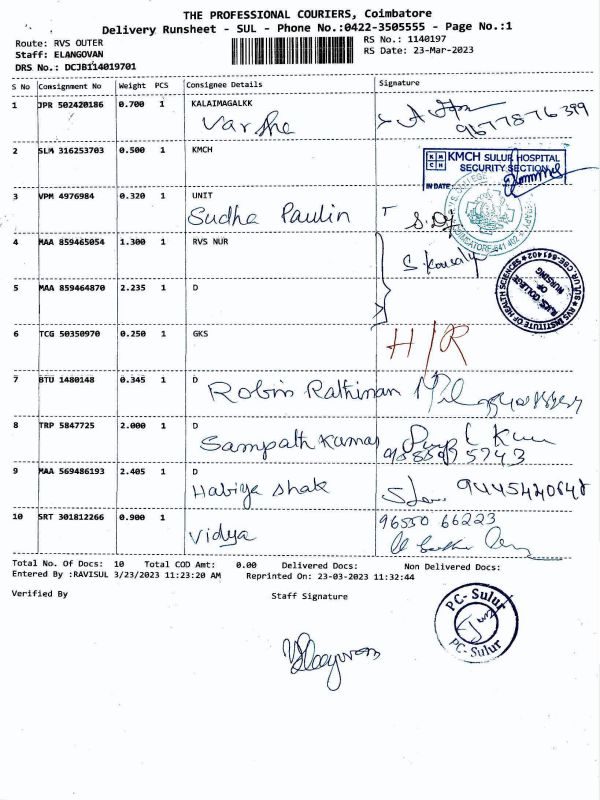 THE PROFESSIONAL COURIERS, Coimbatore
Delivery Runsheet - SUL - Phone No.:0422-3505555 - Page No.:1
Route: RVS OUTER
RS No.: 1140197
Staff: ELANGOVAN
RS Date: 23-Mar-2023
DRS No.: DCJB114019701
S No Consignment No Weight PCS Consignee Details Signature
1 JPR 502420186 0.700 1 KALAIMAGALKK
Varsha
9677876399
2 SLM 316253703 0.500 1 KMCH
KMCH SULUR HOSPITAL
SECURITY SECTION
IN DATE
3 VPM 4976984 0.320 1 UNIT
Sudha Paulin T
COIMBATORE-641 402
4 MAA 859465054 1.300 1 RVS NUR
RVS INSTITUTE OF HEALTH SCIENCES SULUR, CBE-641402
R.V.S. COLLEGE
OF
NURSING
5 MAA 859464870 2.235 1 D
6 TCG 50350970 0.250 1 GKS
H/R
7 BTU 1480148 0.345 1 D
Robin Rathinan
8 TRP 5847725 2.000 1 D
Sampath Kumar
9885975743
9 MAA 569486193 2.405 1 D
Habiya shak
9445420648
10 SRT 301812266 0.900 1
Vidya
96550 66223
Total No. Of Docs: 10 Total COD Amt: 0.00 Delivered Docs: Non Delivered Docs:
Entered By :RAVISUL 3/23/2023 11:23:20 AM Reprinted On: 23-03-2023 11:32:44
Verified By Staff Signature
PC-Sulur
PC-Sulur